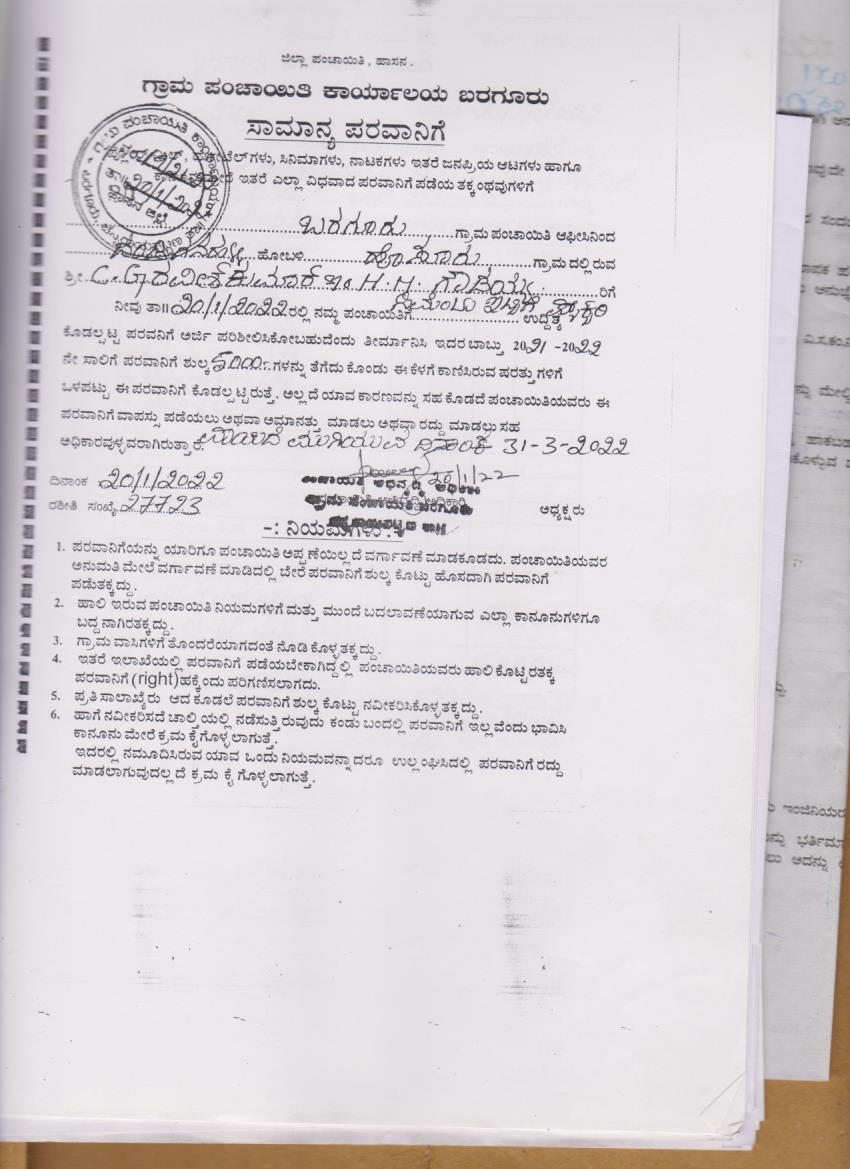 ಜಿಲ್ಲಾ ಪಂಚಾಯಿತಿ, ಹಾಸನ.
ಗ್ರಾಮ ಪಂಚಾಯಿತಿ ಕಾರ್ಯಾಲಯ ಬರಗೂರು
ಸಾಮಾನ್ಯ ಪರವಾನಿಗೆ
ಹೋಟೆಲ್‌ಗಳು, ಸಿನಿಮಾಗಳು, ನಾಟಕಗಳು ಇತರೆ ಜನಪ್ರಿಯ ಆಟಗಳು ಹಾಗೂ
ಇತರೆ ಎಲ್ಲಾ ವಿಧವಾದ ಪರವಾನಿಗೆ ಪಡೆಯ ತಕ್ಕಂಥವುಗಳಿಗೆ
ಬರಗೂರು ಗ್ರಾಮ ಪಂಚಾಯಿತಿ ಆಫೀಸಿನಿಂದ
ಹೋಬಳಿ ಹೊಸೂರು ಗ್ರಾಮದಲ್ಲಿರುವ
ಶ್ರೀ C.G ರವೀಶ್‌ಕುಮಾರ್ H.M. ಗೌಡಯ್ಯ ರಿಗೆ
ನೀವು ತಾ॥ 20/1/2022 ರಲ್ಲಿ ನಮ್ಮ ಪಂಚಾಯಿತಿಗೆ ಸಿಮೆಂಟು ಇಟ್ಟಿಗೆ ಉದ್ದಕ್ಕೆ
ಕೊಡಲ್ಪಟ್ಟ ಪರವನಿಗೆ ಅರ್ಜಿ ಪರಿಶೀಲಿಸಿಕೋಬಹುದೆಂದು ತೀರ್ಮಾನಿಸಿ ಇದರ ಬಾಬ್ತು 2021 -2022
ನೇ ಸಾಲಿಗೆ ಪರವಾನಿಗೆ ಶುಲ್ಕ 5000 ಗಳನ್ನು ತೆಗೆದು ಕೊಂಡು ಈ ಕೆಳಗೆ ಕಾಣಿಸಿರುವ ಷರತ್ತುಗಳಿಗೆ
ಒಳಪಟ್ಟು ಈ ಪರವಾನಿಗೆ ಕೊಡಲ್ಪಟ್ಟಿರುತ್ತೆ. ಅಲ್ಲದೆ ಯಾವ ಕಾರಣವನ್ನು ಸಹ ಕೊಡದೆ ಪಂಚಾಯಿತಿಯವರು ಈ
ಪರವಾನಿಗೆ ವಾಪಸ್ಸು ಪಡೆಯಲು ಅಥವಾ ಅಮಾನತ್ತು ಮಾಡಲು ಅಥವಾ ರದ್ದು ಮಾಡಲು ಸಹ
ಅಧಿಕಾರವುಳ್ಳವರಾಗಿರುತ್ತಾರೆ. ಮುಗಿಯುವ ದಿನಾಂಕ 31-3-2022
ದಿನಾಂಕ 20/1/2022 20/1/22
ರಶೀತಿ ಸಂಖ್ಯೆ 27723 ಅಧ್ಯಕ್ಷರು
-: ನಿಯಮಗಳು :-
1. ಪರವಾನಿಗೆಯನ್ನು ಯಾರಿಗೂ ಪಂಚಾಯಿತಿ ಅಪ್ಪಣೆಯಿಲ್ಲದೆ ವರ್ಗಾವಣೆ ಮಾಡಕೂಡದು. ಪಂಚಾಯಿತಿಯವರ
ಅನುಮತಿ ಮೇಲೆ ವರ್ಗಾವಣೆ ಮಾಡಿದಲ್ಲಿ ಬೇರೆ ಪರವಾನಿಗೆ ಶುಲ್ಕ ಕೊಟ್ಟು ಹೊಸದಾಗಿ ಪರವಾನಿಗೆ
ಪಡುತಕ್ಕದ್ದು.
2. ಹಾಲಿ ಇರುವ ಪಂಚಾಯಿತಿ ನಿಯಮಗಳಿಗೆ ಮತ್ತು ಮುಂದೆ ಬದಲಾವಣೆಯಾಗುವ ಎಲ್ಲಾ ಕಾನೂನುಗಳಿಗೂ
ಬದ್ದನಾಗಿರತಕ್ಕದ್ದು.
3. ಗ್ರಾಮ ವಾಸಿಗಳಿಗೆ ತೊಂದರೆಯಾಗದಂತೆ ನೊಡಿ ಕೊಳ್ಳತಕ್ಕದ್ದು.
4. ಇತರೆ ಇಲಾಖೆಯಲ್ಲಿ ಪರವಾನಿಗೆ ಪಡೆಯಬೇಕಾಗಿದ್ದಲ್ಲಿ ಪಂಚಾಯಿತಿಯವರು ಹಾಲಿ ಕೊಟ್ಟಿರತಕ್ಕ
ಪರವಾನಿಗೆ (right) ಹಕ್ಕೆಂದು ಪರಿಗಣಿಸಲಾಗದು.
5. ಪ್ರತಿ ಸಾಲಾಖೈರು ಆದ ಕೂಡಲೆ ಪರವಾನಿಗೆ ಶುಲ್ಕ ಕೊಟ್ಟು ನವೀಕರಿಸಿಕೊಳ್ಳತಕ್ಕದ್ದು.
6. ಹಾಗೆ ನವೀಕರಿಸದೆ ಚಾಲ್ತಿಯಲ್ಲಿ ನಡೆಸುತ್ತಿರುವುದು ಕಂಡು ಬಂದಲ್ಲಿ ಪರವಾನಿಗೆ ಇಲ್ಲವೆಂದು ಭಾವಿಸಿ
ಕಾನೂನು ಮೇರೆ ಕ್ರಮ ಕೈಗೊಳ್ಳಲಾಗುತ್ತೆ.
ಇದರಲ್ಲಿ ನಮೂದಿಸಿರುವ ಯಾವ ಒಂದು ನಿಯಮವನ್ನಾದರೂ ಉಲ್ಲಂಘಿಸಿದಲ್ಲಿ ಪರವಾನಿಗೆ ರದ್ದು
ಮಾಡಲಾಗುವುದಲ್ಲದೆ ಕ್ರಮ ಕೈಗೊಳ್ಳಲಾಗುತ್ತೆ.